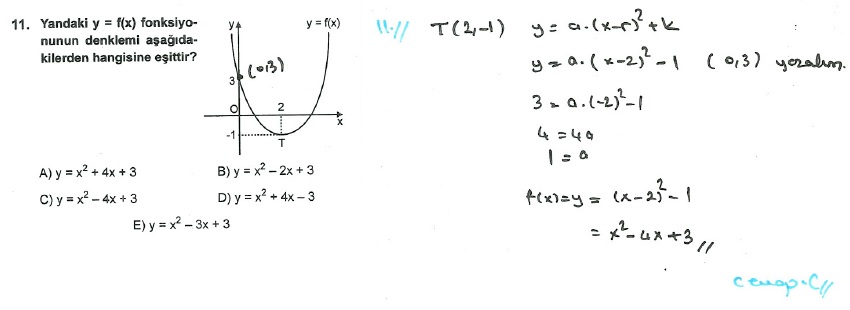 11. Yandaki y = f(x) fonksiyo-
nunun denklemi aşağıda-
kilerden hangisine eşittir?
y
y = f(x)
3
(0,3)
O
2
x
-1
T
A) y = x² + 4x + 3
B) y = x² – 2x + 3
C) y = x² – 4x + 3
D) y = x² + 4x – 3
E) y = x² – 3x + 3
11.//
T(2,-1) y = a.(x-r)²+k
y = a.(x-2)²-1 (0,3) yazalım.
3 = a.(-2)²-1
4 = 4a
1 = a
f(x)=y = (x-2)²-1
= x²-4x+3//
cevap.C//